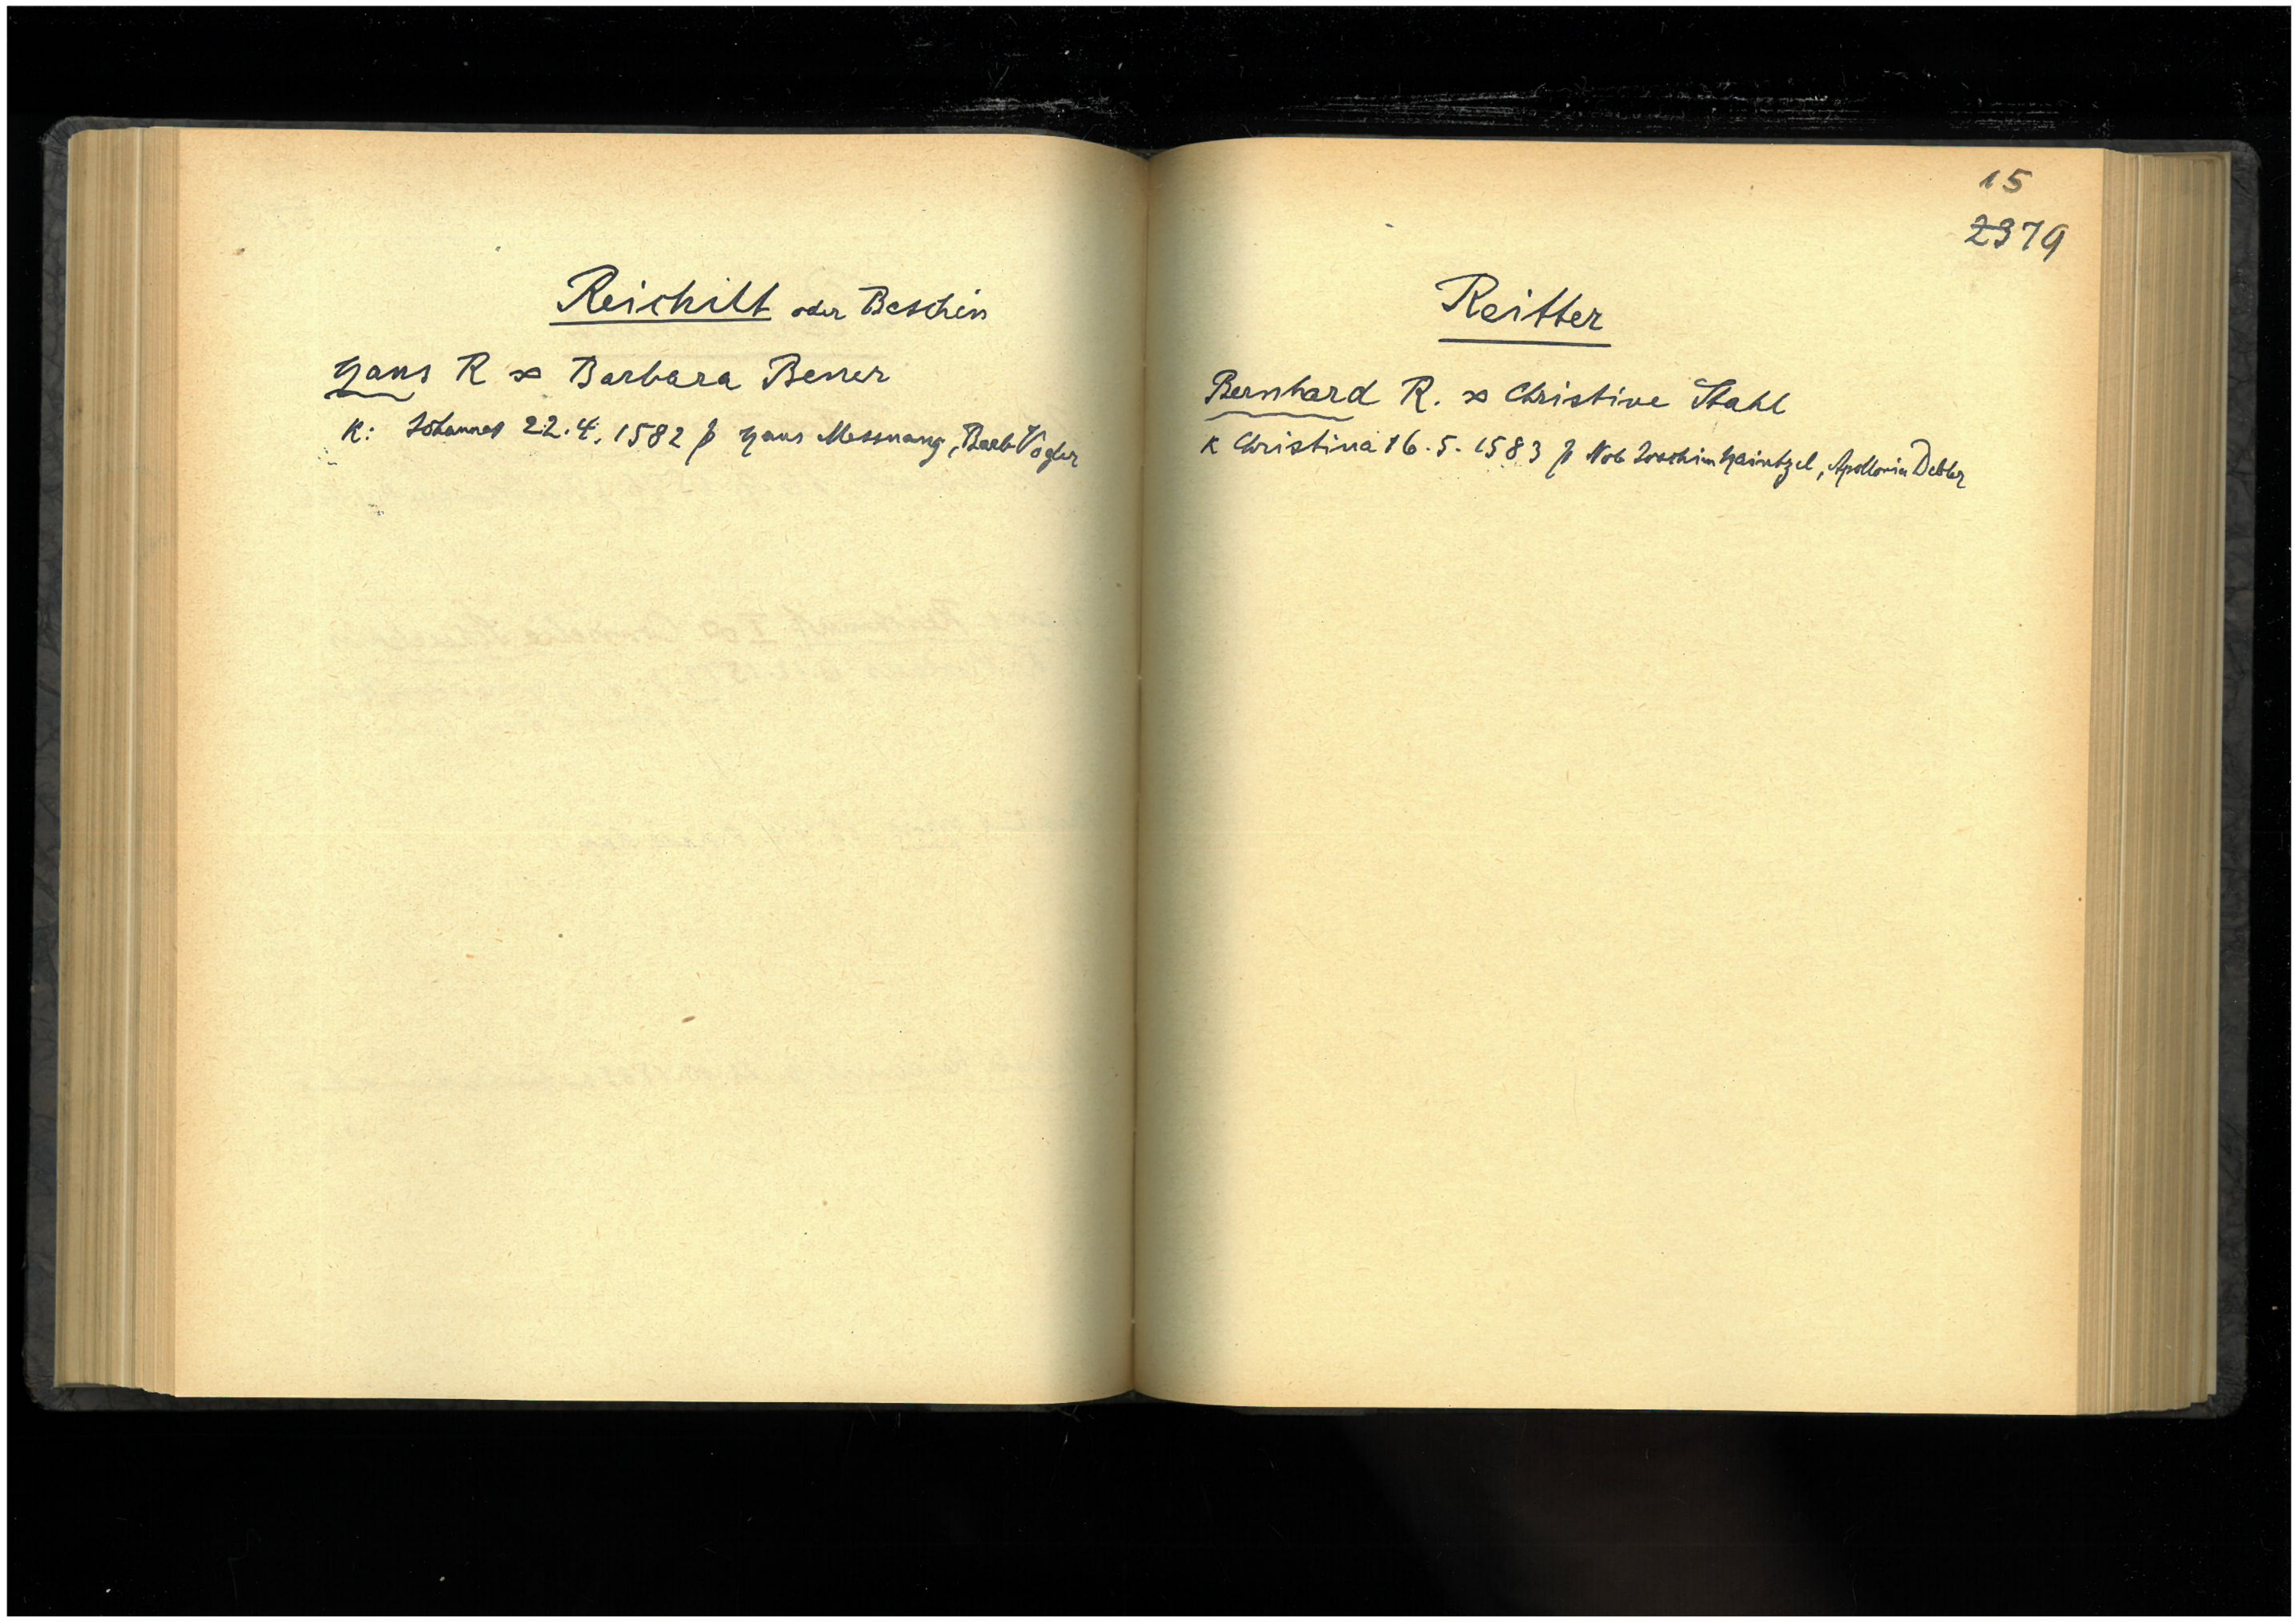 Reichilt oder Beschin
Hans R ∞ Barbara Bener
K: Johannes 22.4.1582 p Hans Messnang, Barb Vogler
15
2379
Reitter
Bernhard R. ∞ Christine Stahl
K Christina 16.5.1583 p Nob Joachim Haintzel, Apollonia Debler